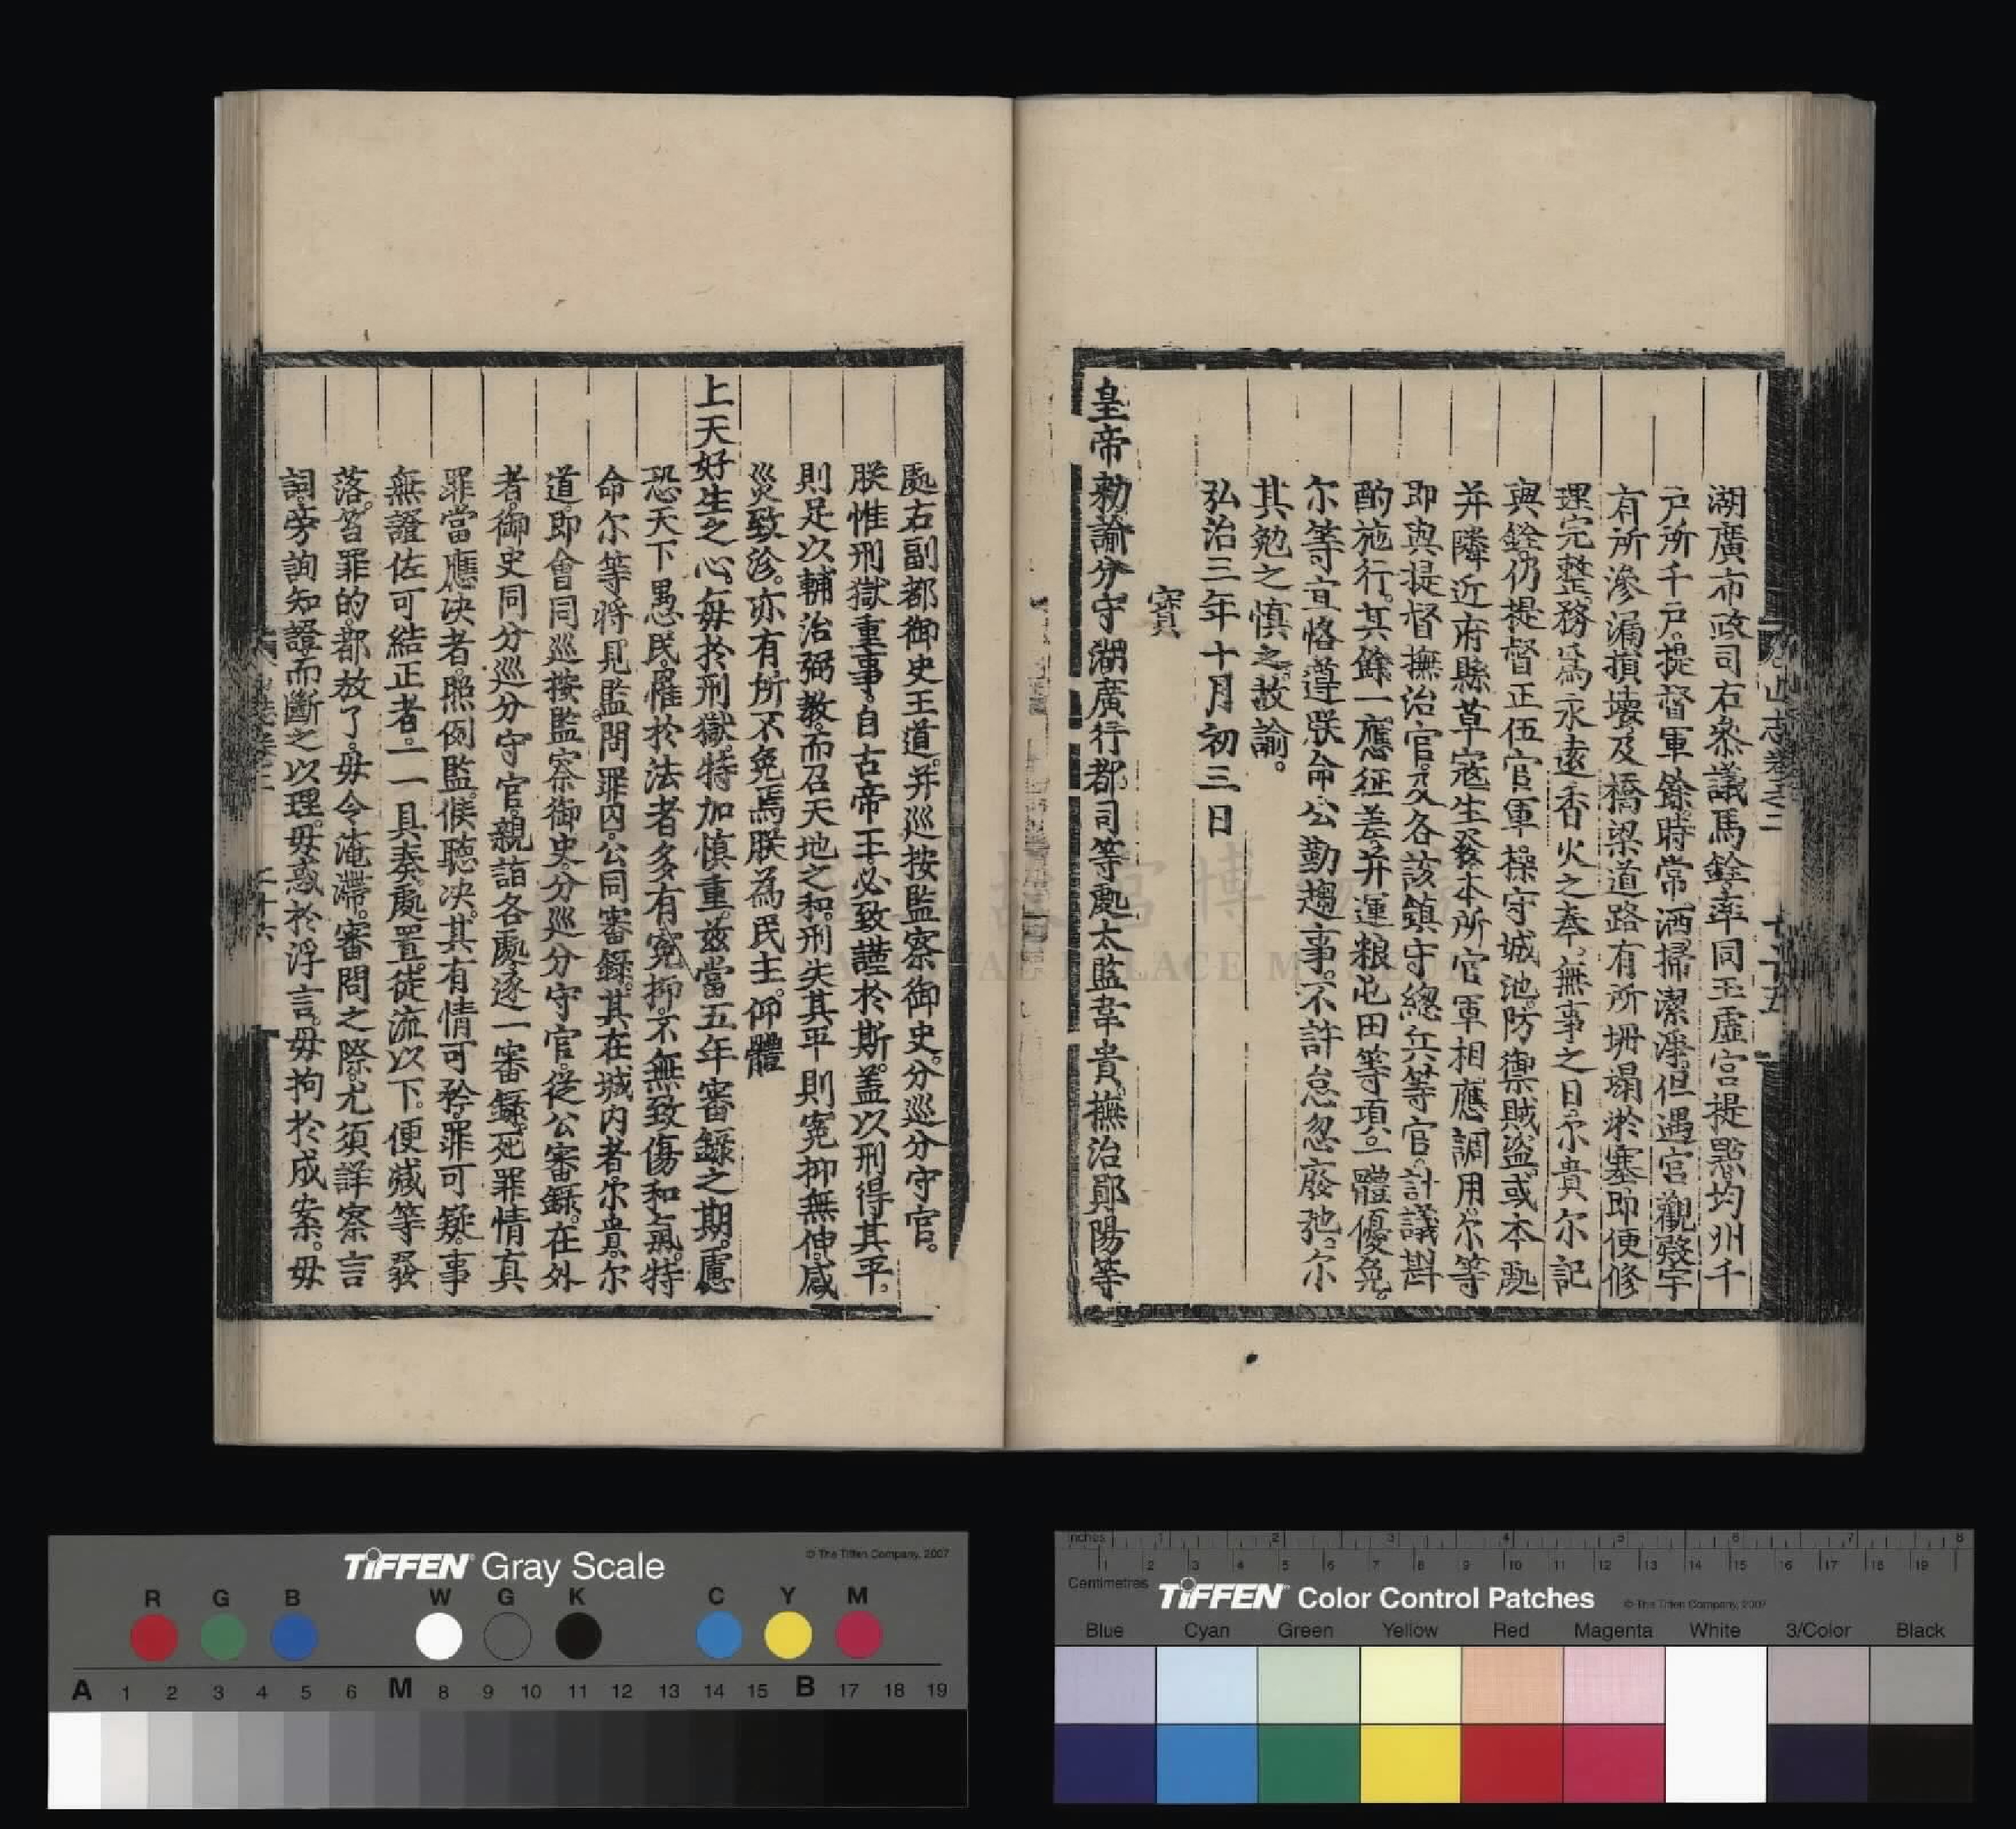 湖廣布政司右叅議馬銓率同玉虛宮提㸃均州千
戶所千戶提督軍餘時常洒掃潔淨但遇宮觀殿宇
有所滲漏損壞及橋梁道路有所坍塌淤塞即便修
理完整務爲永遠香火之奉無事之日尔貴尔記
與銓仍提督正伍官軍操守城池防禦賊盜或本處
并隣近府縣草寇生發本所官軍相應調用尔等
即與提督撫治官及各該鎮守總兵等官計議斟
酌施行其餘一應征差并運粮屯田等項一體優免。
尔等宜恪遵朕命公勤趨事不許怠忽廢弛尔
其勉之慎之故諭。
弘治三年十月初三日
寳
皇帝勅諭分守湖廣行都司等處太監韋貴撫治鄖陽等
處右副都御史王道并巡按監察御史分巡分守官。
朕惟刑獄重事自古帝王必致謹於斯蓋以刑得其平。
則足以輔治弼教而召天地之和刑失其平則寃抑無伸咸
災致沴亦有所不免焉朕為民主仰體
上天好生之心每於刑獄特加慎重兹當五年審録之期慮
恐天下愚民罹於法者多有寃抑不無致傷和氣特
命尔等将見監問罪囚公同審録其在城内者尔貴尔
道即會同巡按監察御史分巡分守官從公審録在外
者御史同分巡分守官親詣各處逐一審録死罪情真
罪當應决者照例監候聴决其有情可矜罪可疑事
無證佐可結正者一一具奏處置徒流以下便减等發
落笞罪的都放了毋令淹滯審問之際尤須詳察言
詞旁詢知證而斷之以理毋惑於浮言毋拘於成案毋
山志卷之二
十五
TIFFEN Gray Scale
© The Tiffen Company, 2007
R G B W G K C Y M
A 1 2 3 4 5 6 M 8 9 10 11 12 13 14 15 B 17 18 19
inches 1 2 3 4 5 6 7 8
1 2 3 4 5 6 7 8 9 10 11 12 13 14 15 16 17 18 19
Centimetres
TIFFEN Color Control Patches
© The Tiffen Company, 2007
Blue Cyan Green Yellow Red Magenta White 3/Color Black